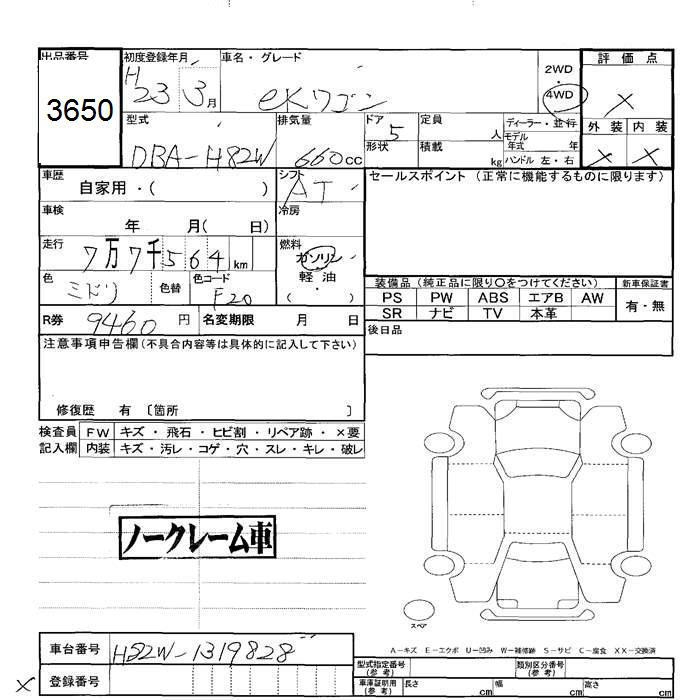 出品番号 初度登録年月 車名・グレード 2WD 評価点
3650 H23 3月 eKワゴン 4WD ×
型式 排気量 ドア 5 定員 人 ディーラー・並行 外装 内装
DBA-H82W 660cc 形状 積載 kg モデル年式 年 ハンドル 左・右 × ×
車歴 自家用・( ) シフト AT セールスポイント (正常に機能するものに限ります)
車検 年 月( 日) 冷房
走行 7万7千564km 燃料 ガソリン・軽油・( )
色 ミドリ 色替 色コード F20 装備品(純正品に限り○をつけてください) 新車保証書
PS PW ABS エアB AW 有・無
R券 9460円 名変期限 月 日 SR ナビ TV 本革
注意事項申告欄(不具合内容等は具体的に記入して下さい) 後日品
修復歴 有 〔箇所 〕
検査員 FW キズ・飛石・ヒビ割・リペア跡・×要
記入欄 内装 キズ・汚レ・コゲ・穴・スレ・キレ・破レ
ノークレーム車
スペア
A-キズ E-エクボ U-凹み W-補修跡 S-サビ C-腐食 XX-交換済
車台番号 H82W-1319828 型式指定番号(参考) 類別区分番号(参考)
× 登録番号 車庫証明用(参考) 長さ cm 幅 cm 高さ cm